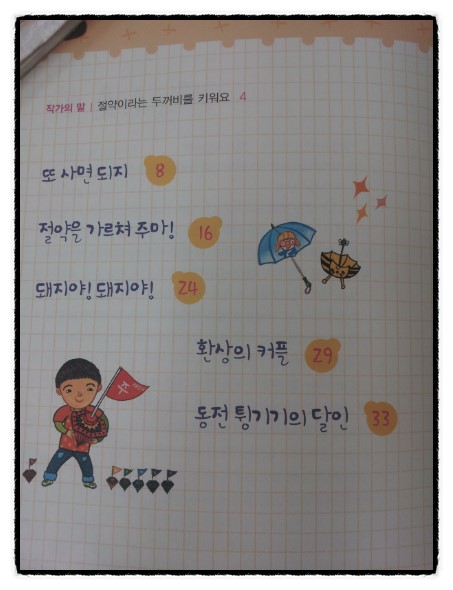 작가의 말 | 절약이라는 두꺼비를 키워요 4
또 사면 되지 8
절약을 가르쳐 주마! 16
돼지야! 돼지야! 24
환상의 커플 29
동전 튕기기의 달인 33